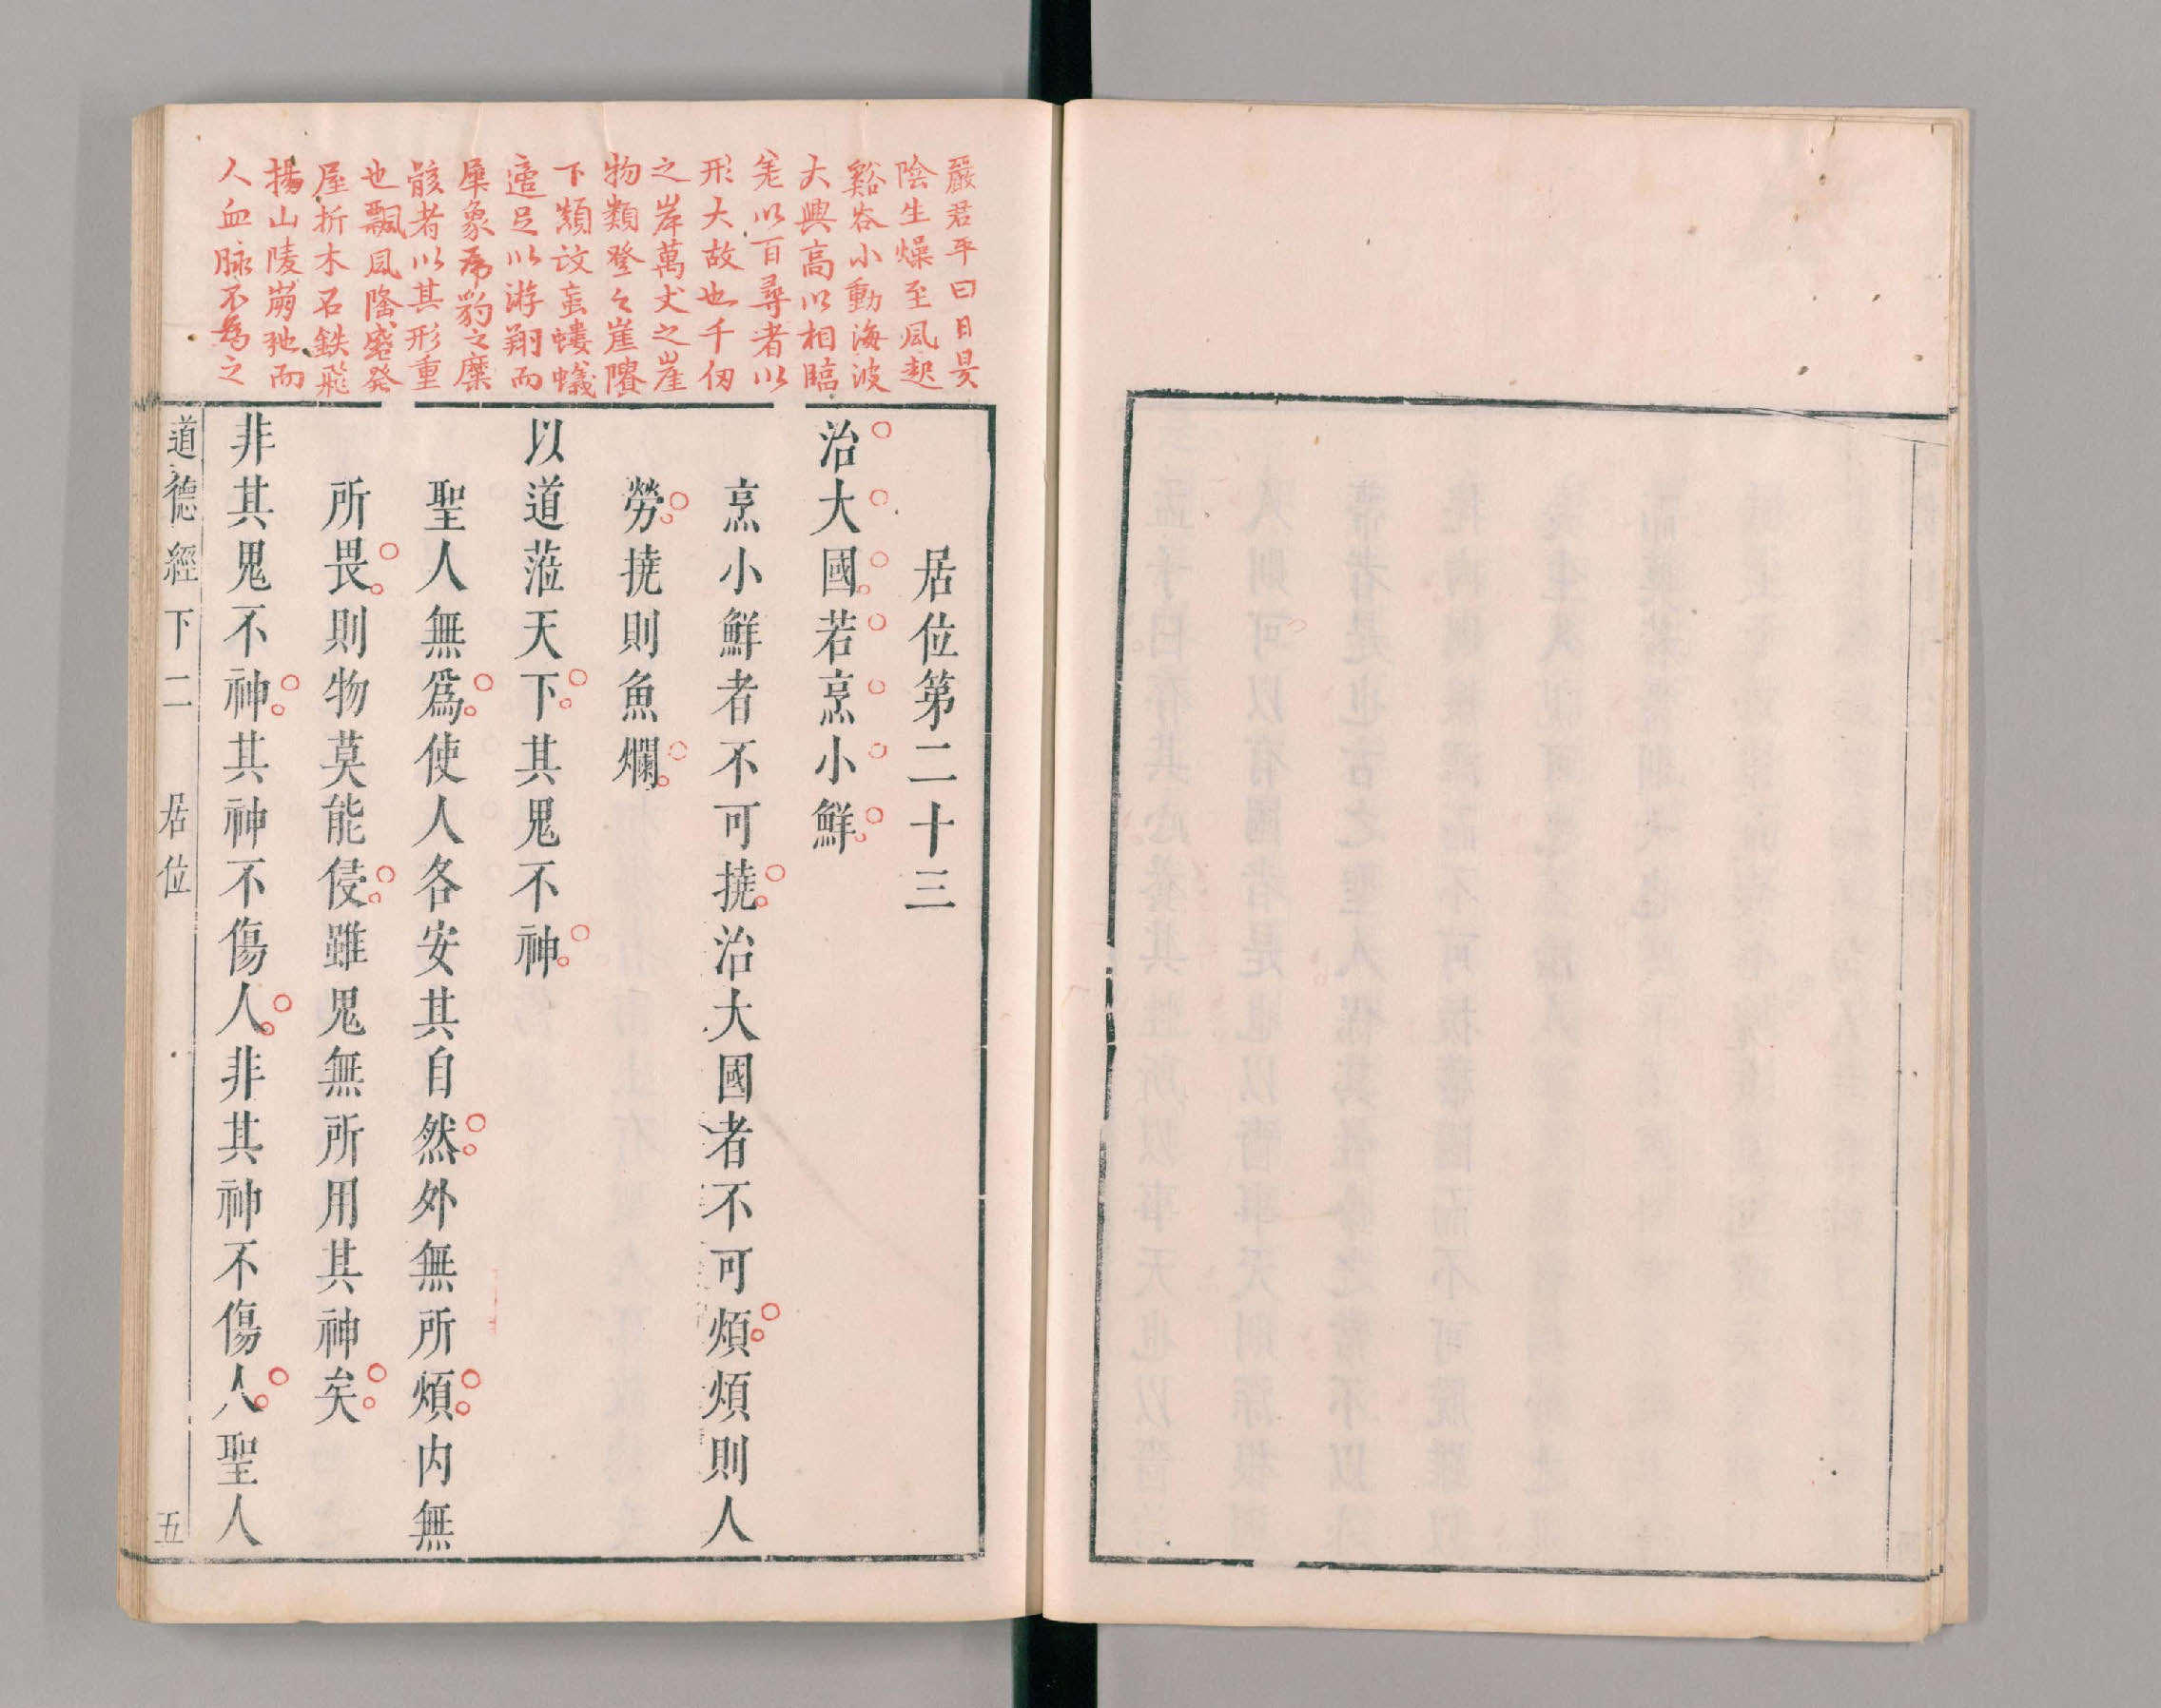 嚴君平曰日昃
陰生燥至風起
谿谷小動海波
大興高以相臨
筦以百尋者以
形大故也千仞
之岸萬丈之崖
物類登之崖隤
下頹蚊虻螻蟻
適足以游翔而
犀象虎豹之糜
骸者以其形重
也飄風隆盛發
屋折木石鉄飛
揚山陵崩弛而
人血脉不爲之
居位第二十三
治大國若烹小鮮
烹小鮮者不可撓治大國者不可煩煩則人
勞撓則魚爛
以道蒞天下其鬼不神
聖人無爲使人各安其自然外無所煩內無
所畏則物莫能侵雖鬼無所用其神矣
非其鬼不神其神不傷人非其神不傷人聖人
道德經下二 居位 五